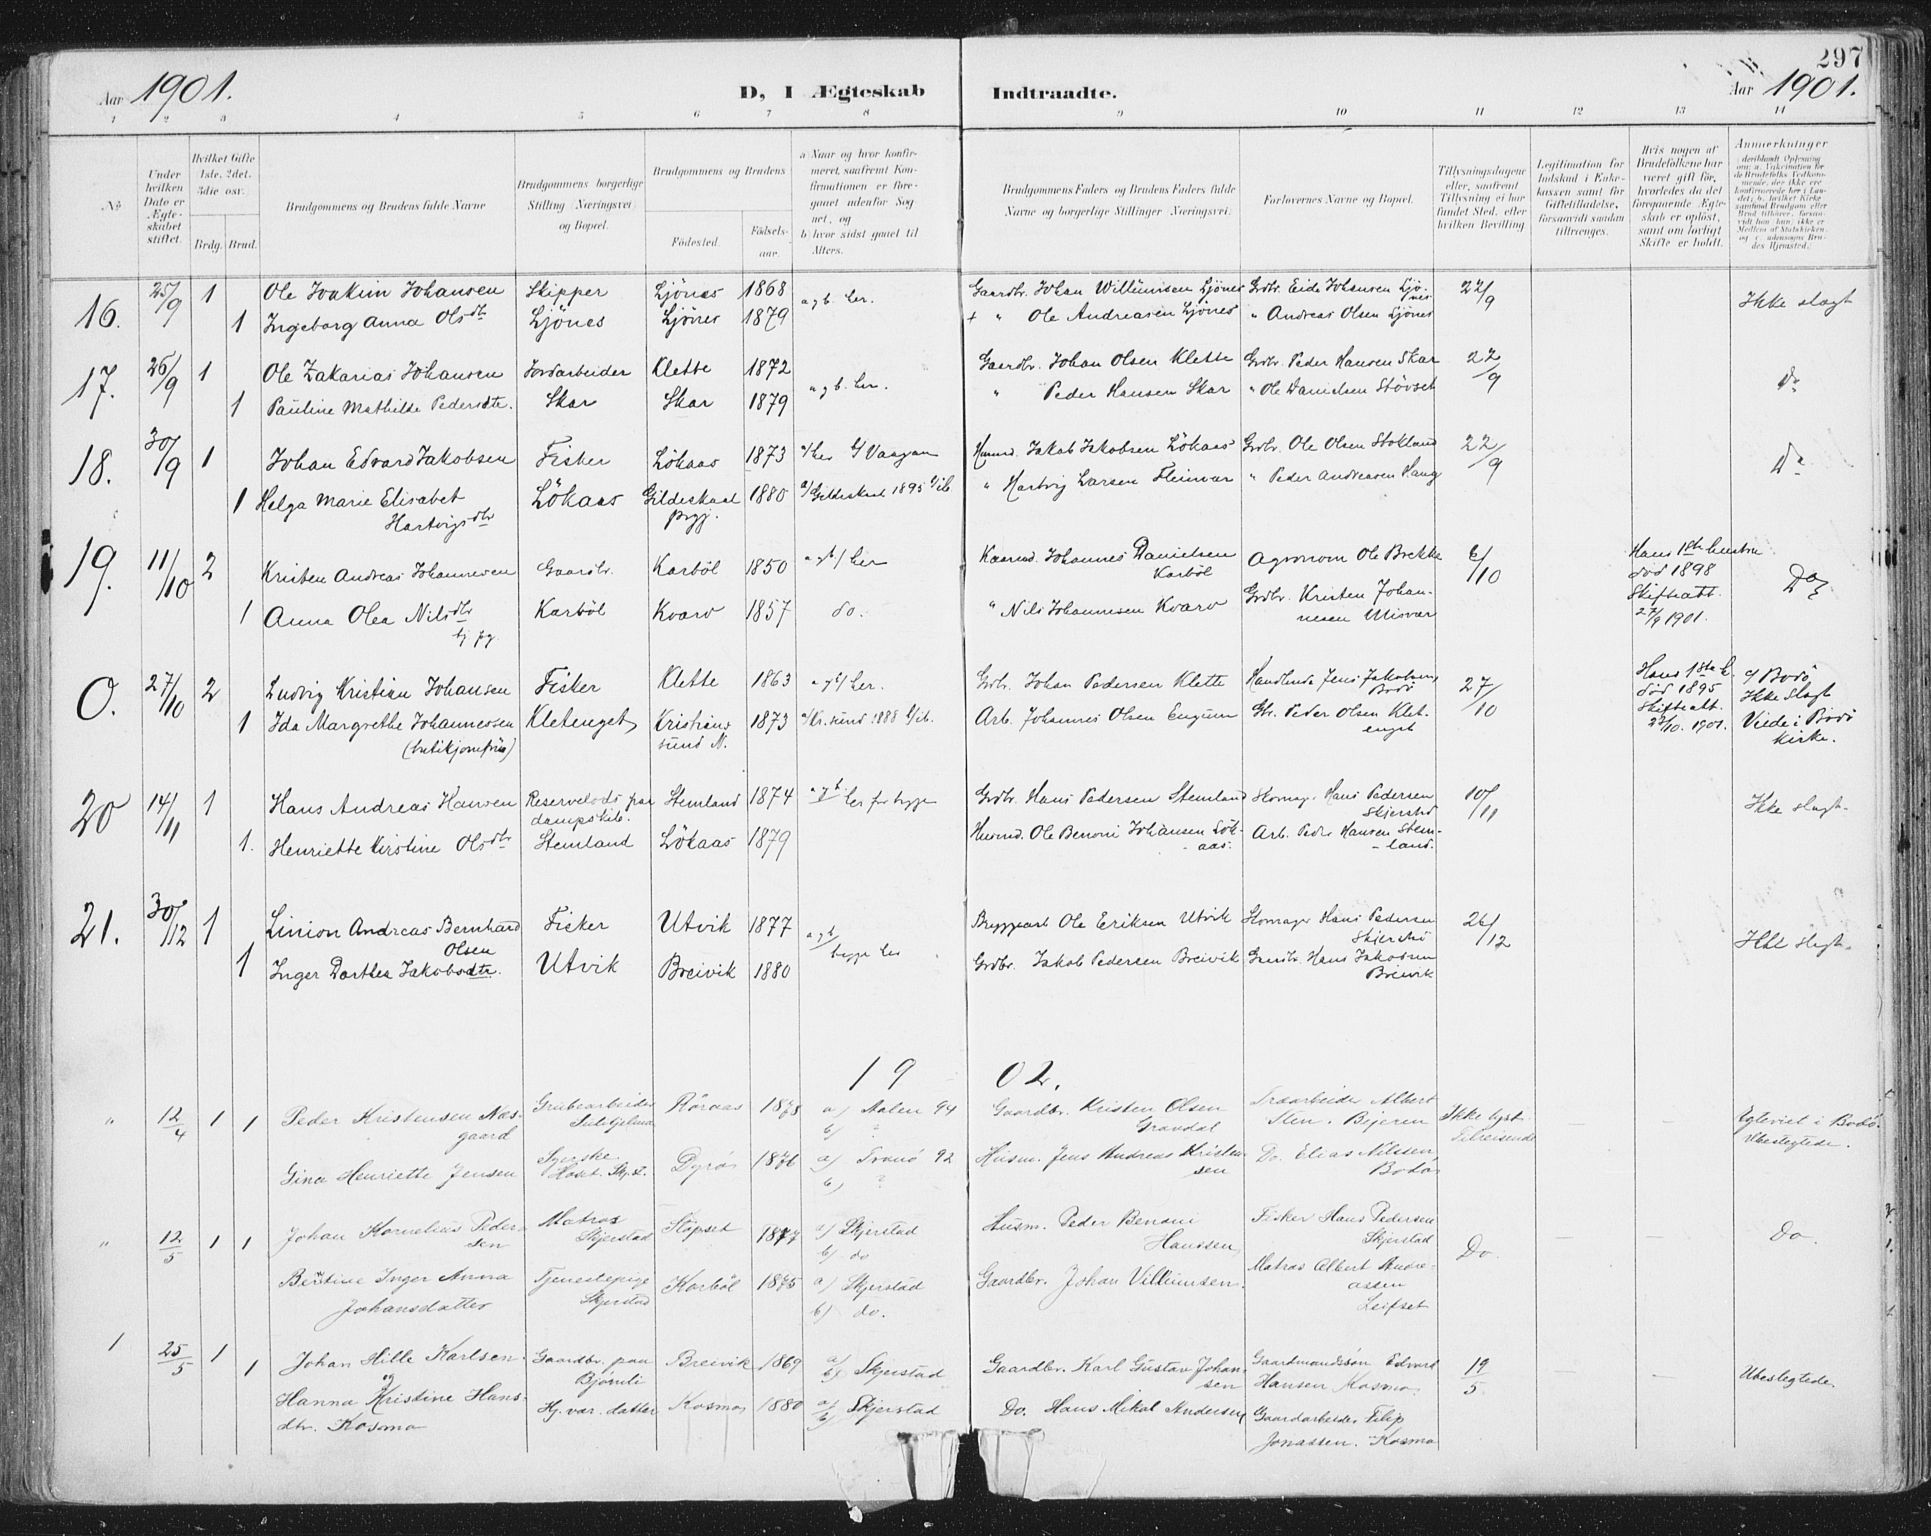 297
Aar 1901.
D, I Ægteskab
Indtraadte.
Aar 1901.
1 2 3 4 5 6 7 8 9 10 11 12 13 14
No.
Under hvilken Dato er Ægteskabet stiftet.
Hvilket Gifte 1ste, 2det, 3die osv.
Brdg. Brud.
Brudgommens og Brudens fulde Navne
Brudgommens borgerlige Stilling (Næringsvei) og Bopæl.
Brudgommens og Brudens
Fødested.
Fødselsaar.
a Naar og hvor konfirmeret, saafremt Konfirmationen er foregaaet udenfor Sognet, og
b hvor sidst gaaet til Alters.
Brudgommens Faders og Brudens Faders fulde Navne og borgerlige Stillinger (Næringsvei).
Forlovernes Navne og Bopæl.
Tillysningsdagene eller, saafremt Tillysning ei har fundet Sted, efter hvilken Bevilling
Legitimation for Indskud i Enkekassen samt for Giftetilladelse, forsaavidt saadan tiltrænges.
Hvis nogen af Brudefolkene har været gift før, hvorledes da det foregaaende Ægteskab er opløst, samt om lovligt Skifte er holdt.
Anmærkninger
16. 25/9 1 Ole Joakim Johansen Skipper Ljönes 1868 a g b. her. Gaardbr. Johan Willumsen Ljönes Grdbr. Eide Johansen Ljönes 22/9 Ikke slægt
1 Ingeborg Anna Olsdtr Ljönes Ljönes 1879 + " Ole Andreasen Ljönes " Andreas Olsen Ljönes
17. 26/9 1 Ole Zakarias Johansen Jordarbeider Klette 1872 a g b. her. Gaardbr. Johan Olsen Klette Grdbr. Peder Hansen Skar 22/9 Do
1 Pauline Mathilde Pedersdtr. Skar Skar 1879 " Peder Hansen Skar " Ole Danielsen Stövset
18. 30/9 1 Johan Edvard Jakobsen Fisker Lökaas 1873 a/ her b/ Vaagan Husmd. Jakob Jakobsen Lökaas Grdbr. Ole Olsen Stokland 22/9 Do
1 Helga Marie Elisabet Hartvigsdtr Lökaas Gildeskaal prgj. 1880 a/ Gildeskaal 1895 b/ ib. " Hartvig Larsen Fleinvær " Peder Andreasen Haug
19. 11/10 2 Kristen Andreas Johannesen Gaardbr. Karböl 1850 a g b/ her Husmd. Johannes Danielsen Karböl Agronom Ole Brekke 6/10 Hans 1ste hustru död 1898 Skifteatt. 27/9 1901. Do
1 Anna Olea Nilsdtr Karböl Kvarv 1857 do. " Nils Johannesen Kvarv Grdbr. Kristen Johannesen Misvær
O. 27/10 2 Ludvig Kristian Johansen Fisker Klette 1863 a g b/ her. Grdbr. Johan Pedersen Klette Handlende Jens Jakobsen Bodö 27/10 Hans 1ste h. död 1895 Skifteatt. 23/10. 1901. Ikke slægt Viede i Bodö kirke.
1 Ida Margrethe Johannessen Kletenget Kristiansund N. 1873 a/ Kr.sund 1888 b/ ib. Arb. Johannes Olsen Gbr. Peder Olsen Kletenget
20 14/11 1 Hans Andreas Hansen Reservelods paa dampskib. Stemland 1874 a g b her før begge Grdbr. Hans Pedersen Stemland Skomag. Hans Pedersen Skjerstad 10/11 Ikke slægt.
1. Henriette Kirstine Olsdtr Stemland Lökaas 1879 Husmd. Ole Benoni Johansen Lökaas. Arb. Peder Hansen Stemland.
21. 30/12 1 Linion Andreas Bernhard Olsen Fisker Utvik 1877 a g b/ begge her Ole Eriksen Utvik Skomager Hans Pedersen Skjerstad 26/12 Ikke slægt.
1 Inger Dorthea Jakobsdtr. Utvik Breivik 1880 Grdbr. Jakob Pedersen Breivik Gaardbr. Hans Jakobsen Breivik
1902.
" 12/4 1 1 Peder Kristensen Næsgaard Grubearbeider Sulitjelma Röraas 1878 a) Aalen 94 b) ? Gaardbr. Kristen Olsen Gravdal Albert Sten. Ikke lyst Tilreisende — — Ægteviet i Bodö. Ubeslegtede.
Gina Henriette Jensen Dyrö 1876 a) Tranö 92 b) ? Husm. Jens Andreas Kristensen Do. Elias Nilssen Bodö
" 12/5 1 1 Johan Kornelius Pedersen Matros Skjerstad Stöpset 1877 a) Skjerstad b) do Husm. Peder Benoni Hanssen Fisker Hans Pedersen Skjerstad Do. — — Do.
Bertine Inger Anna Johansdatter Tjenestepige Skjerstad Karböl 1875 a) Skjerstad b) do. Gaardbr. Johan Villumsen. Matros Albert Andreassen Leifset
1 25/5 1 1 Johan Hille Karlsen og Gaardbr. paa Bjørnli Breivik 1869 a) b) Skjerstad Gaardbr. Karl Gustav Johansen Gaardmandssön Edvard Hansen Kosmo 19/5 — — Ubeslegtede.
Hanna Kristine Hansdtr. Kosmo Hj.vær. datter Kosmo 1880 a) b) Skjerstad Do. Hans Mikal Andersen Gaardarbeider Filip Jonassen. Kosmo